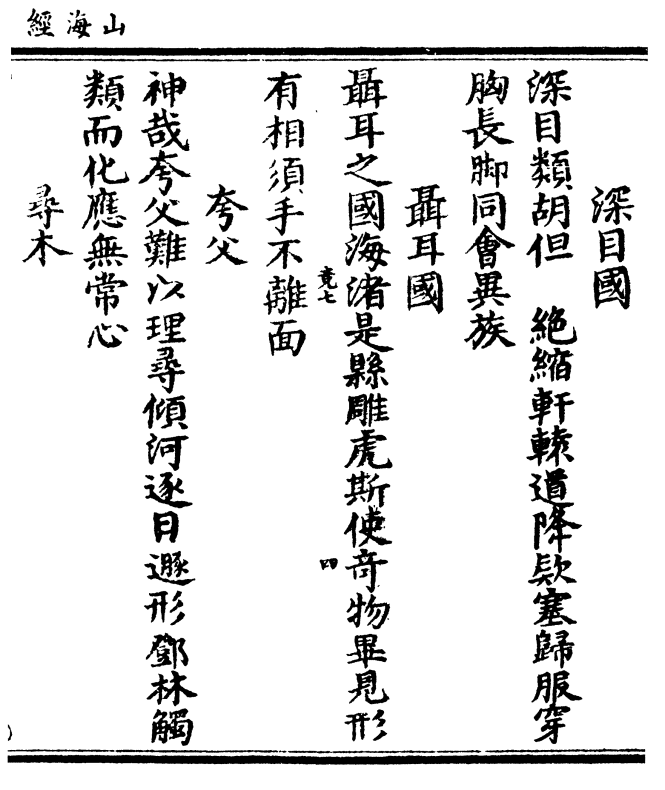 山海經
深目國
深目類胡但 絶縮軒轅道降欵塞歸服穿
胸長脚同會異族
聶耳國
聶耳之國海渚是縣雕虎斯使奇物畢見形
竟七
四
有相須手不離面
夸父
神哉夸父難以理尋傾河逐日遯形鄧林觸
類而化應無常心
尋木